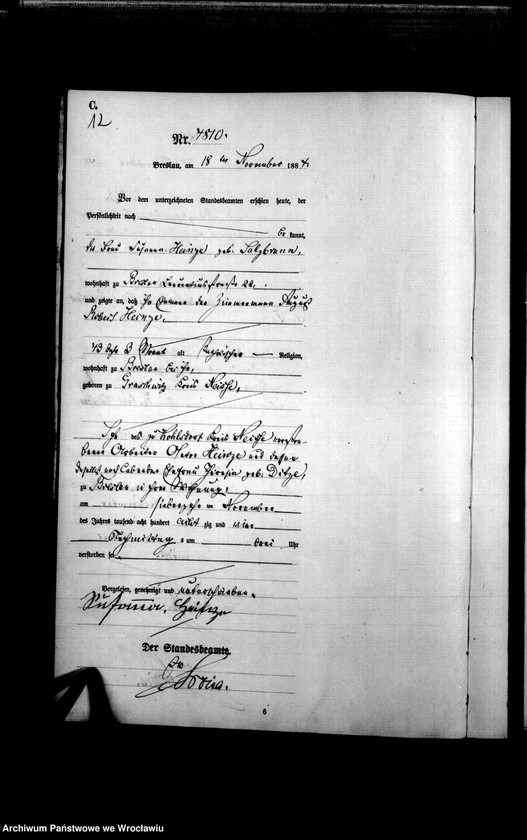 C.
12
Nr. 4810.
Breslau, am 18 ten November 1884.
Vor dem unterzeichneten Standesbeamten erschien heute, der
Persönlichkeit nach
be kannt,
die Frau Heinze geb. Salzbrunn,
wohnhaft zu Breslau 22,
und zeigte an, daß ihr Ehemann der Zimmermann August
Robert Heinze,
43 Jahr 3 Monat alt katholischer Religion,
wohnhaft zu Breslau bei ihr,
geboren zu Kreis Neisse,
Sohn des zu Kohlsdorf Kreis Neisse verstor-
benen Arbeiters Heinze und dessen
daselbst noch lebenden Ehefrau geb. Ditze,
zu Breslau in ihrer Wohnung,
am siebzehnten November
des Jahres tausend acht hundert acht zig und vier
Nachmittag s um drei Uhr
verstorben sei.
Vorgelesen, genehmigt und unterschrieben.
Susanna Heinze
Der Standesbeamte.
6
Archiwum Państwowe we Wrocławiu